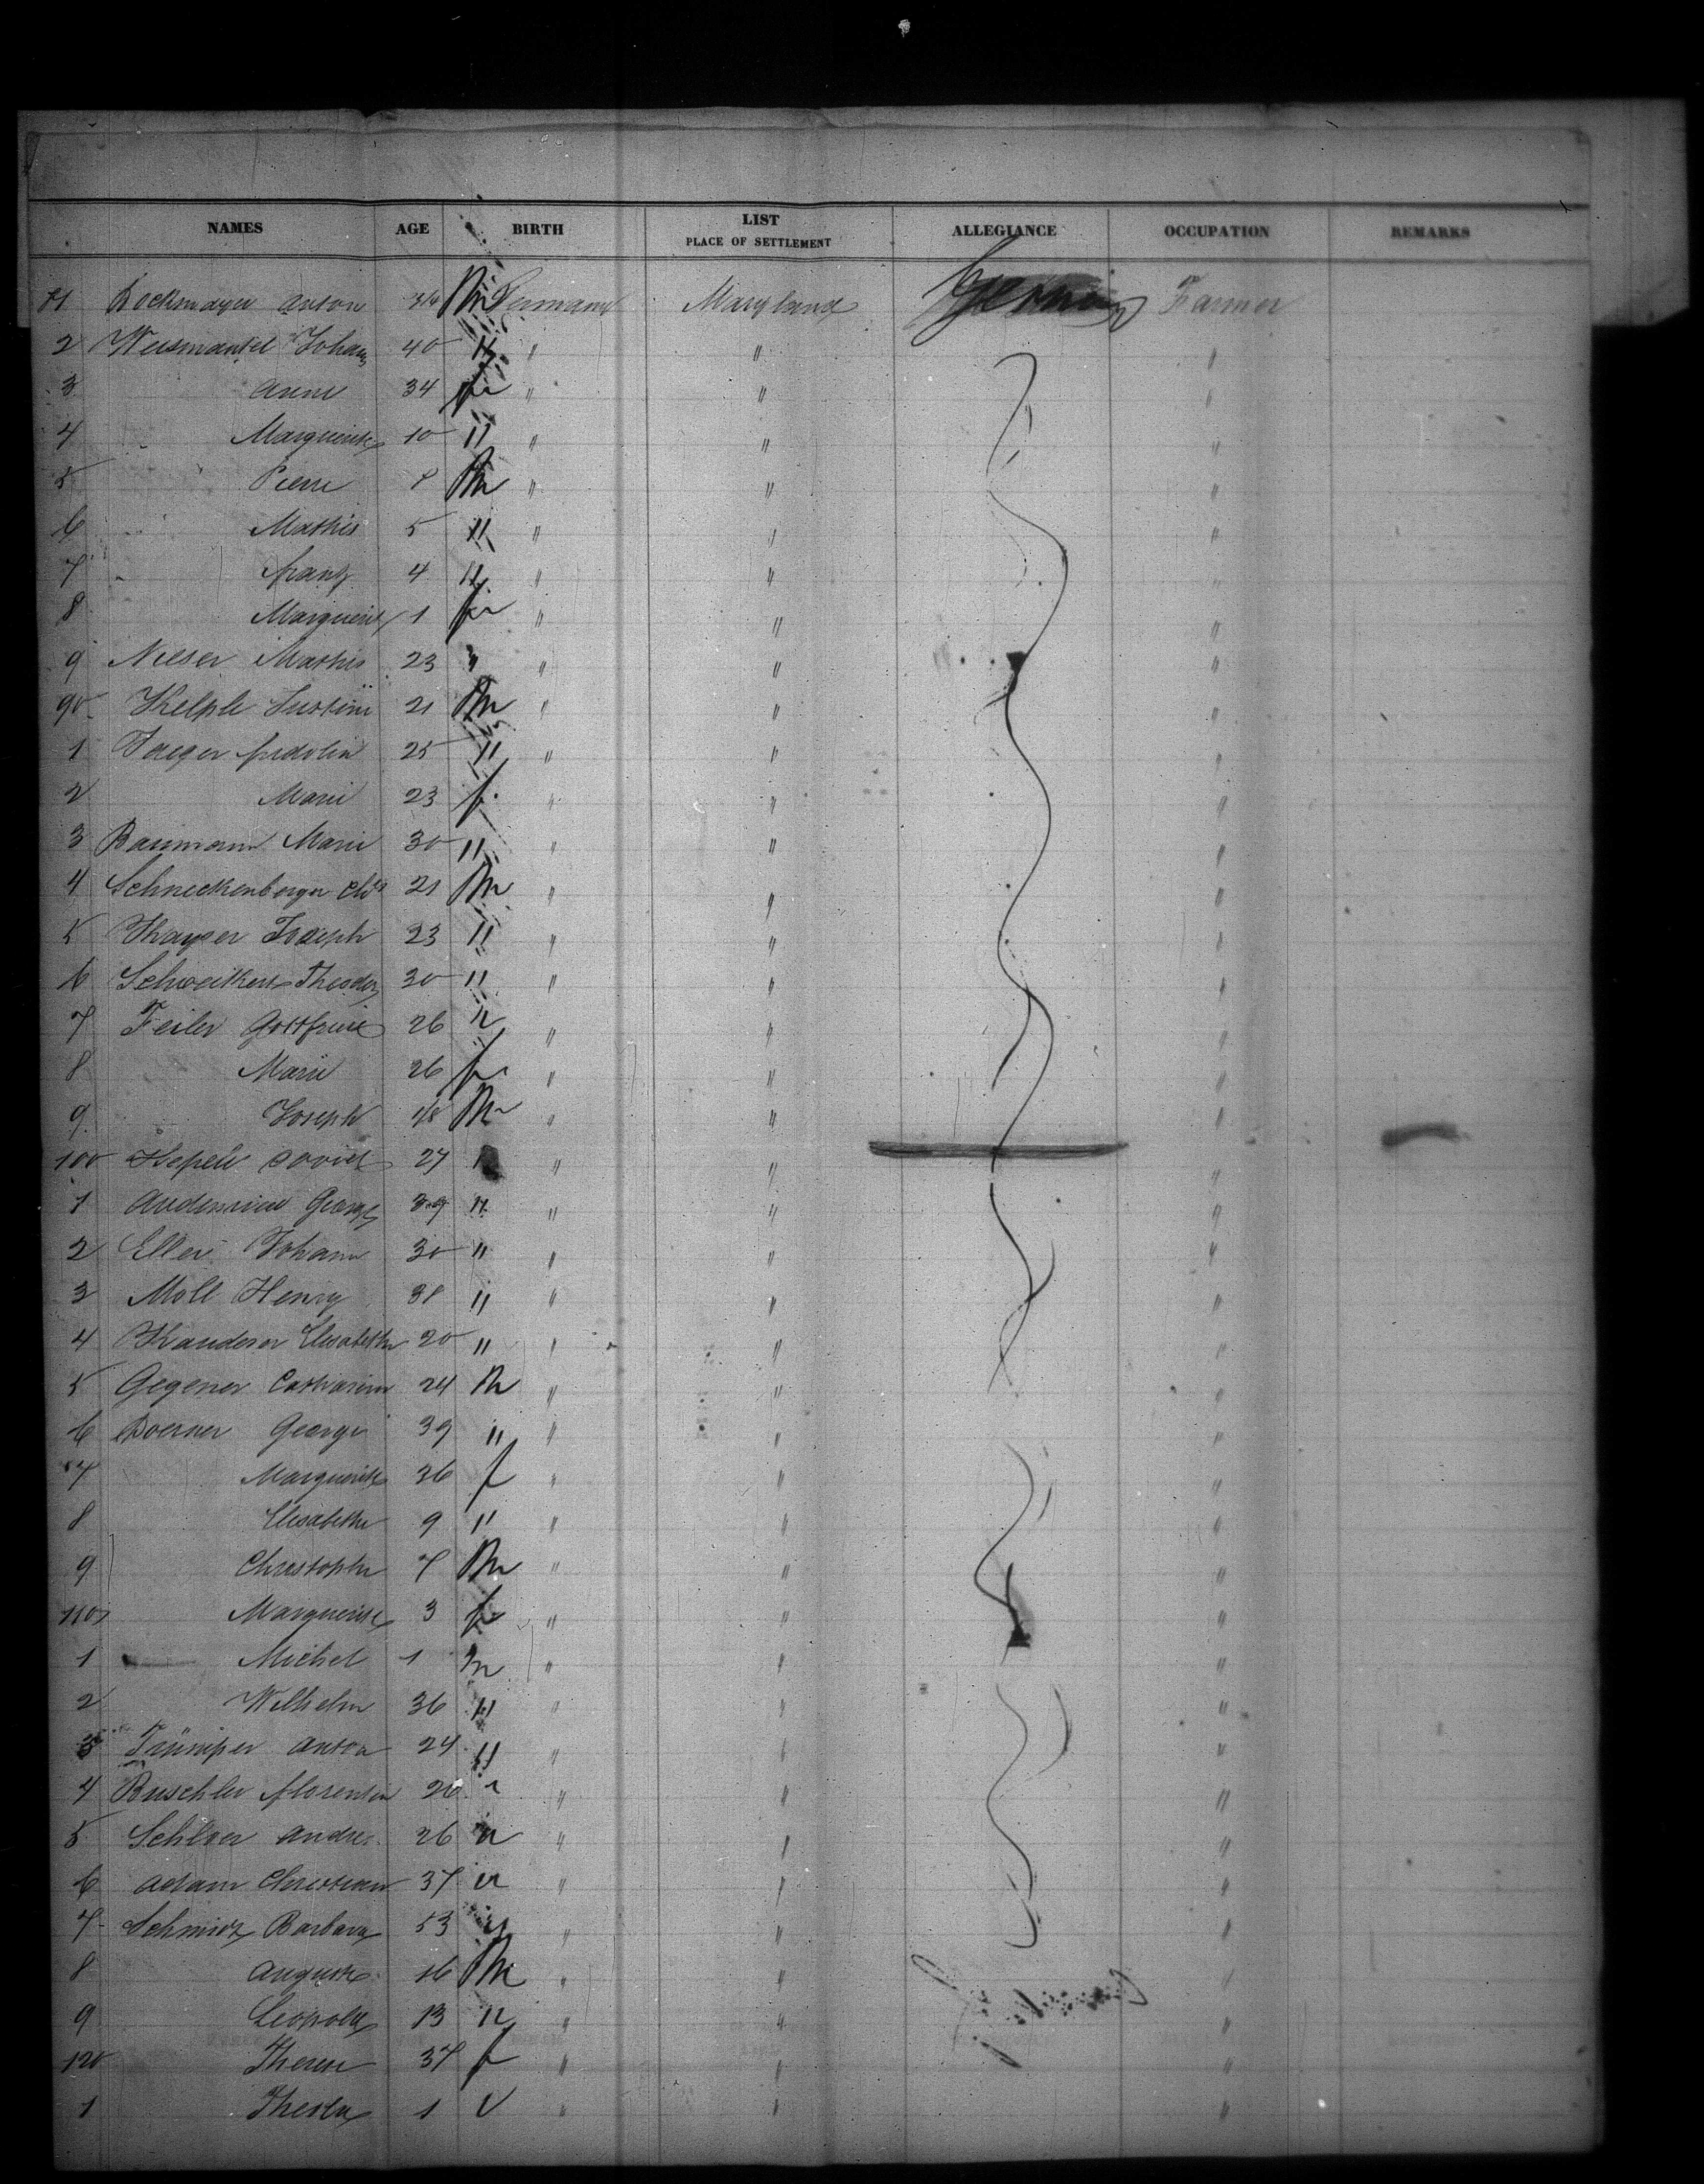 NAMES AGE BIRTH LIST PLACE OF SETTLEMENT ALLEGIANCE OCCUPATION REMARKS
Anton Germany Maryland German Farmer
2 Weismantel Johann 40 " " " "
3 Anne 34 f " " "
4 Marguerite 10 " " " "
5 Pierre 8 m " " "
6 Mathis 5 " " " "
7 Frantz 4 " " " "
8 Marguerite 1 f " " "
9 Nieser Mathis 23 " " " "
90 21 m " " "
1 Jaeger Fridolin 25 " " " "
2 Marie 23 f " " "
3 Baumann Marie 30 " " " "
4 Schneckenberger Chrs 21 m " " "
5 Kayser Joseph 23 " " " "
6 Schweikert Theodor 30 " " " "
7 Feiler Gottfried 26 " " " "
8 Marie 26 f " " "
9 Joseph m " " "
100 David 27 " " "
1 George " " " "
2 Eller Johann 30 " " " "
3 Moll Henry 38 " " " "
4 Elisabeth 20 " " " "
5 Gegener Catharine 24 m " " "
6 Doerner George 39 " " " "
7 Marguerite 36 f " " "
8 Elisabethe 9 " " " "
9 Christophe 7 m " " "
110 Marguerite 3 f " " "
1 Michel 1 m " " "
2 Wilhelm 36 " " " "
3 Trümper Anton 24 " " " "
4 Buschler Florentin 26 " " " "
5 Schloer Andre 26 " " " "
6 Adam Christian 37 " " " "
7 Schmidt Barbara 53 " " " "
8 Auguste 16 m " " "
9 Leopold 13 " " " "
120 Therese 37 f " " "
1 Thekla 1 " " " "